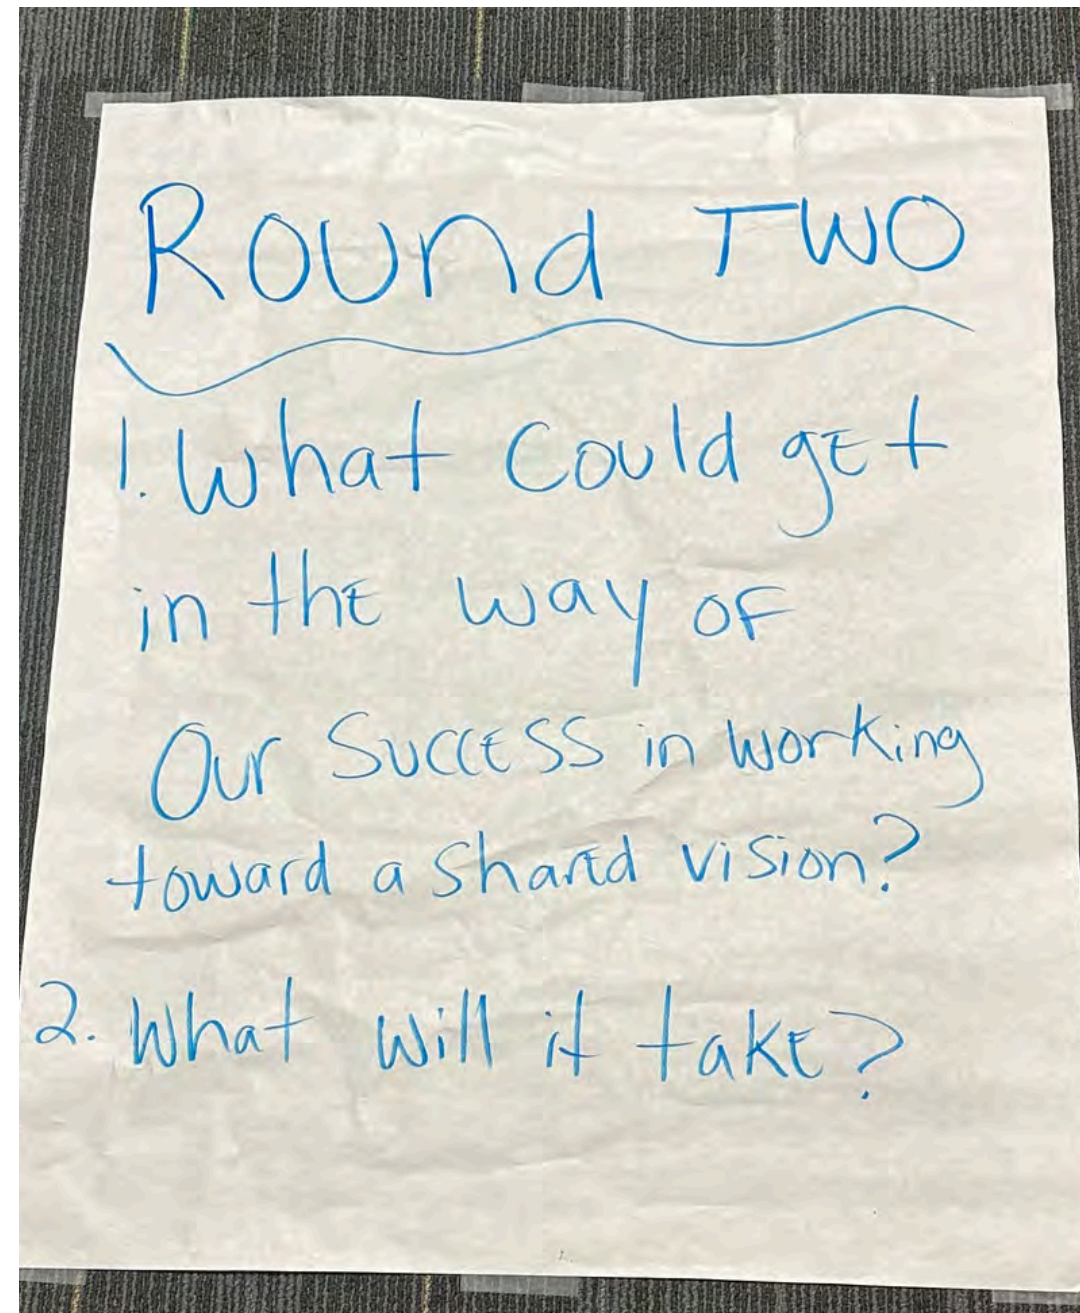 Round Two
1. What could get
in the way of
Our Success in working
toward a shared vision?
2. What will it take?